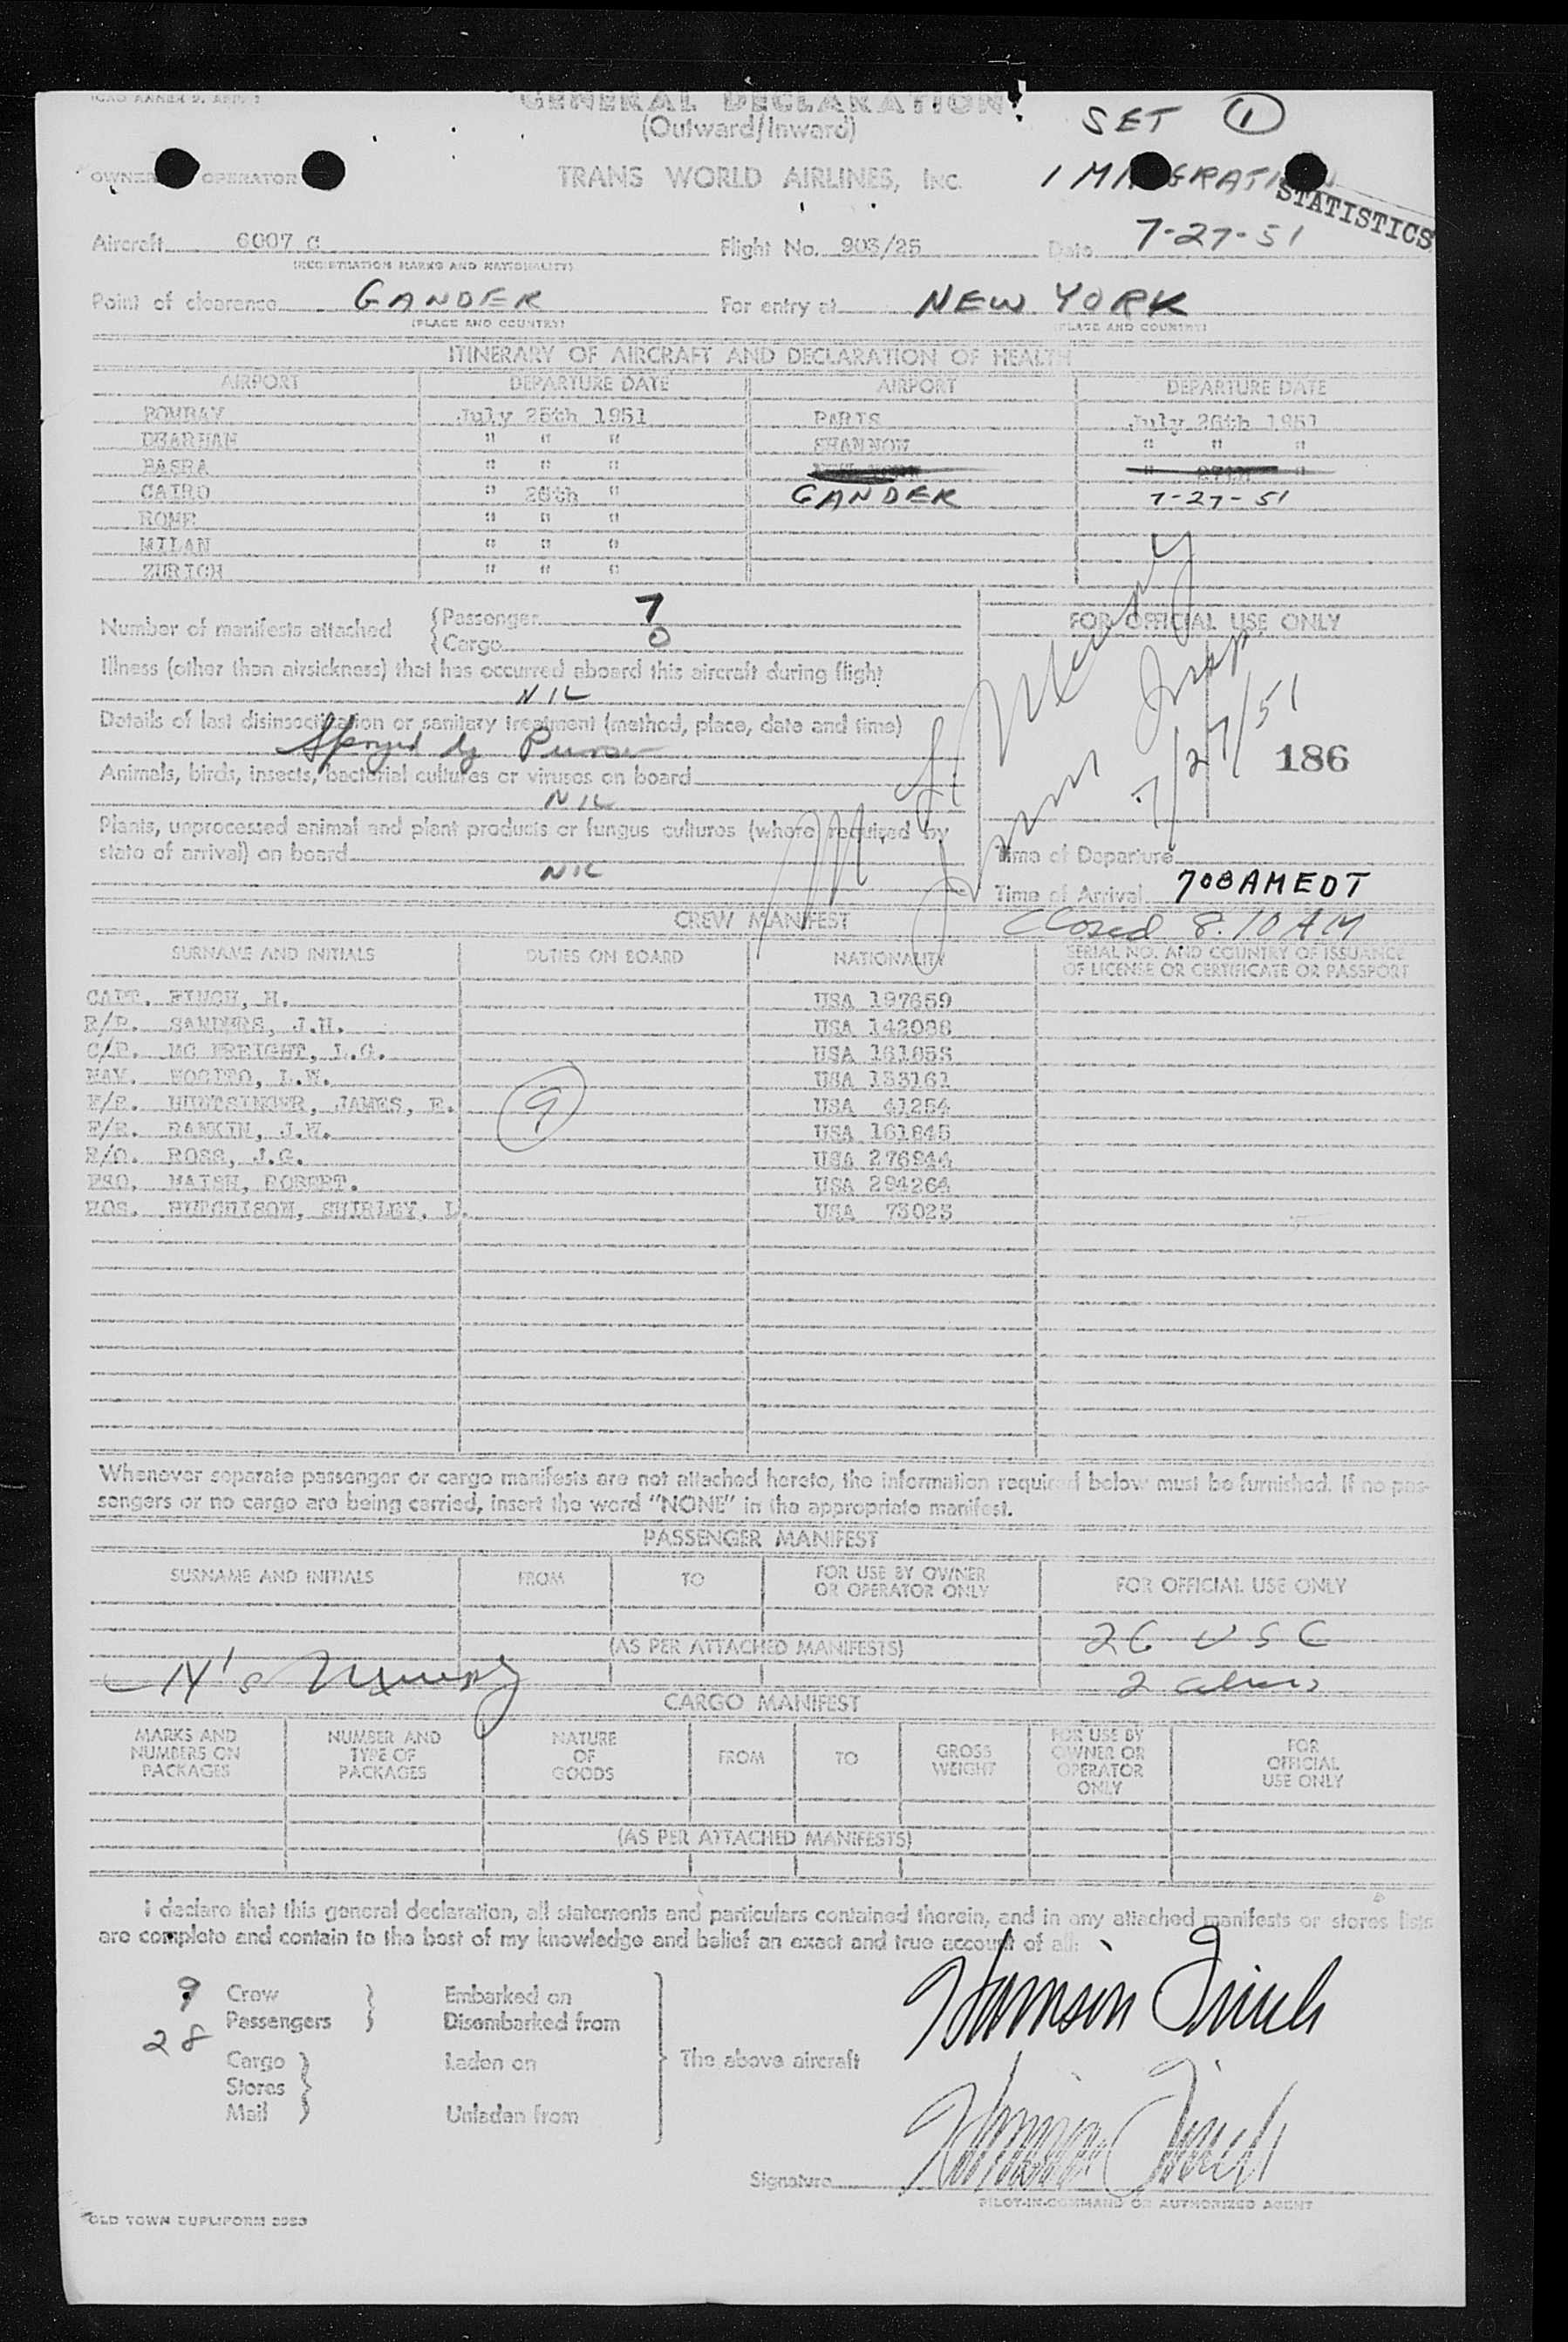 GENERAL DECLARATION
(Outward/Inward)
SET 1
OWNER OPERATOR
TRANS WORLD AIRLINES, INC.
IMMIGRATION
STATISTICS
Aircraft 6007 C Flight No. 903/25 Date 7-27-51
(REGISTRATION MARKS AND NATIONALITY)
Point of clearance GANDER For entry at NEW YORK
(PLACE AND COUNTRY) (PLACE AND COUNTRY)
ITINERARY OF AIRCRAFT AND DECLARATION OF HEALTH
AIRPORT DEPARTURE DATE AIRPORT DEPARTURE DATE
BOMBAY July 25th 1951 PARIS July 26th 1951
DHARHAN " " " SHANNON " " "
BASRA " " "
CAIRO " 26th " GANDER 7-27-51
ROME " " "
MILAN " " "
ZURICH " " "
Number of manifests attached {Passenger 7
{Cargo 0
FOR OFFICIAL USE ONLY
Illness (other than airsickness) that has occurred aboard this aircraft during flight
NIL
Details of last disinsectization or sanitary treatment (method, place, date and time)
by Purser
7/27/51
186
Animals, birds, insects, bacterial cultures or viruses on board
NIL
Plants, unprocessed animal and plant products or fungus cultures (where required by
state of arrival) on board
NIL
Time of Departure
Time of Arrival 708AMEDT
Closed 8:10 AM
CREW MANIFEST
SURNAME AND INITIALS DUTIES ON BOARD NATIONALITY SERIAL NO. AND COUNTRY OF ISSUANCE
OF LICENSE OR CERTIFICATE OR PASSPORT
CAPT. FINCH, H. USA 197659
SANDERS, J.H. USA 142086
MC FREIGHT, L.G. USA 161055
NAV. L.W. USA 153161
F/E. HUNTSINGER, JAMES, E. 9 USA 41254
F/E. RANKIN, J.W. USA 161845
R/O. ROSS, J.G. USA 276944
ROBERT. USA 294264
HOS. HUTCHISON, SHIRLEY, L. USA 75025
Whenever separate passenger or cargo manifests are not attached hereto, the information required below must be furnished. If no pas-
sengers or no cargo are being carried, insert the word "NONE" in the appropriate manifest.
PASSENGER MANIFEST
SURNAME AND INITIALS FROM TO FOR USE BY OWNER
OR OPERATOR ONLY FOR OFFICIAL USE ONLY
(AS PER ATTACHED MANIFESTS) 26 USC
2 aliens
CARGO MANIFEST
MARKS AND
NUMBERS ON
PACKAGES NUMBER AND
TYPE OF
PACKAGES NATURE
OF
GOODS FROM TO GROSS
WEIGHT FOR USE BY
OWNER OR
OPERATOR
ONLY FOR
OFFICIAL
USE ONLY
(AS PER ATTACHED MANIFESTS)
I declare that this general declaration, all statements and particulars contained therein, and in any attached manifests or stores lists
are complete and contain to the best of my knowledge and belief an exact and true account of all:
9 Crew } Embarked on
28 Passengers } Disembarked from
Cargo } Laden on The above aircraft
Stores }
Mail } Unladen from
Harrison Finch
Signature Harrison Finch
PILOT-IN-COMMAND OR AUTHORIZED AGENT
OLD TOWN DUPLIFORM